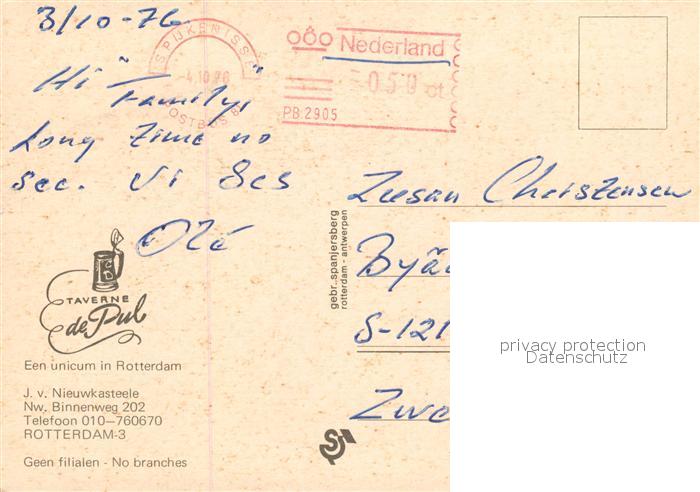 3/10-76
SPIJKENISSE
-4.10.76
POSTBUS 8
Nederland
050 ct
PB.2905
Hi "Family"
Long time no
see. Vi Ses
Olé
TAVERNE
de Pul
Een unicum in Rotterdam
J. v. Nieuwkasteele
Nw. Binnenweg 202
Telefoon 010-760670
ROTTERDAM-3
Geen filialen - No branches
gebr. spanjersberg
rotterdam - antwerpen
Zusan Christensen
S-121
Zwe
privacy protection
Datenschutz